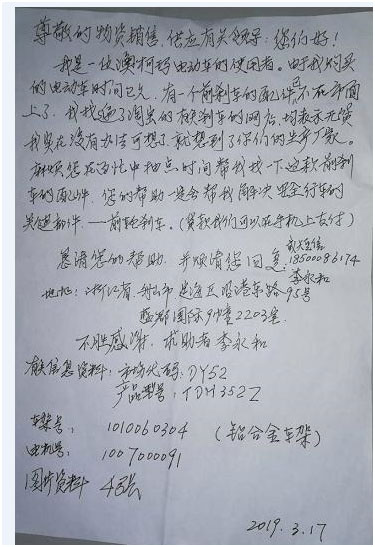 尊敬的物资销售、供应有关领导：您们好！
我是一位澳柯玛电动车的使用者。由于我购买
的电动车时间已久，有一个前刹车的配件已不在市面
上了，我找遍了淘宝的有刹车的网店，均表示无货
我实在没有办法可想了，就想到了你们的生产厂家。
麻烦您在百忙中抽点时间帮我找一下这款前刹
车的配件，您的帮助一定会帮我解决安全行车的
关键部件——前轮刹车。（货款我们可以在手机上支付）
恳请您的帮助，并烦请您回复
18500086174
李永和
地址：浙江省 舟山市 定海区 港东路95号
国际9幢2203室
不胜感谢，求助者李永和
有关信息资料：市场代码：DY52
产品型号：TDH352Z
车架号：1010060304（铝合金车架）
电机号：1007000091
图片资料 4张
2019.3.17